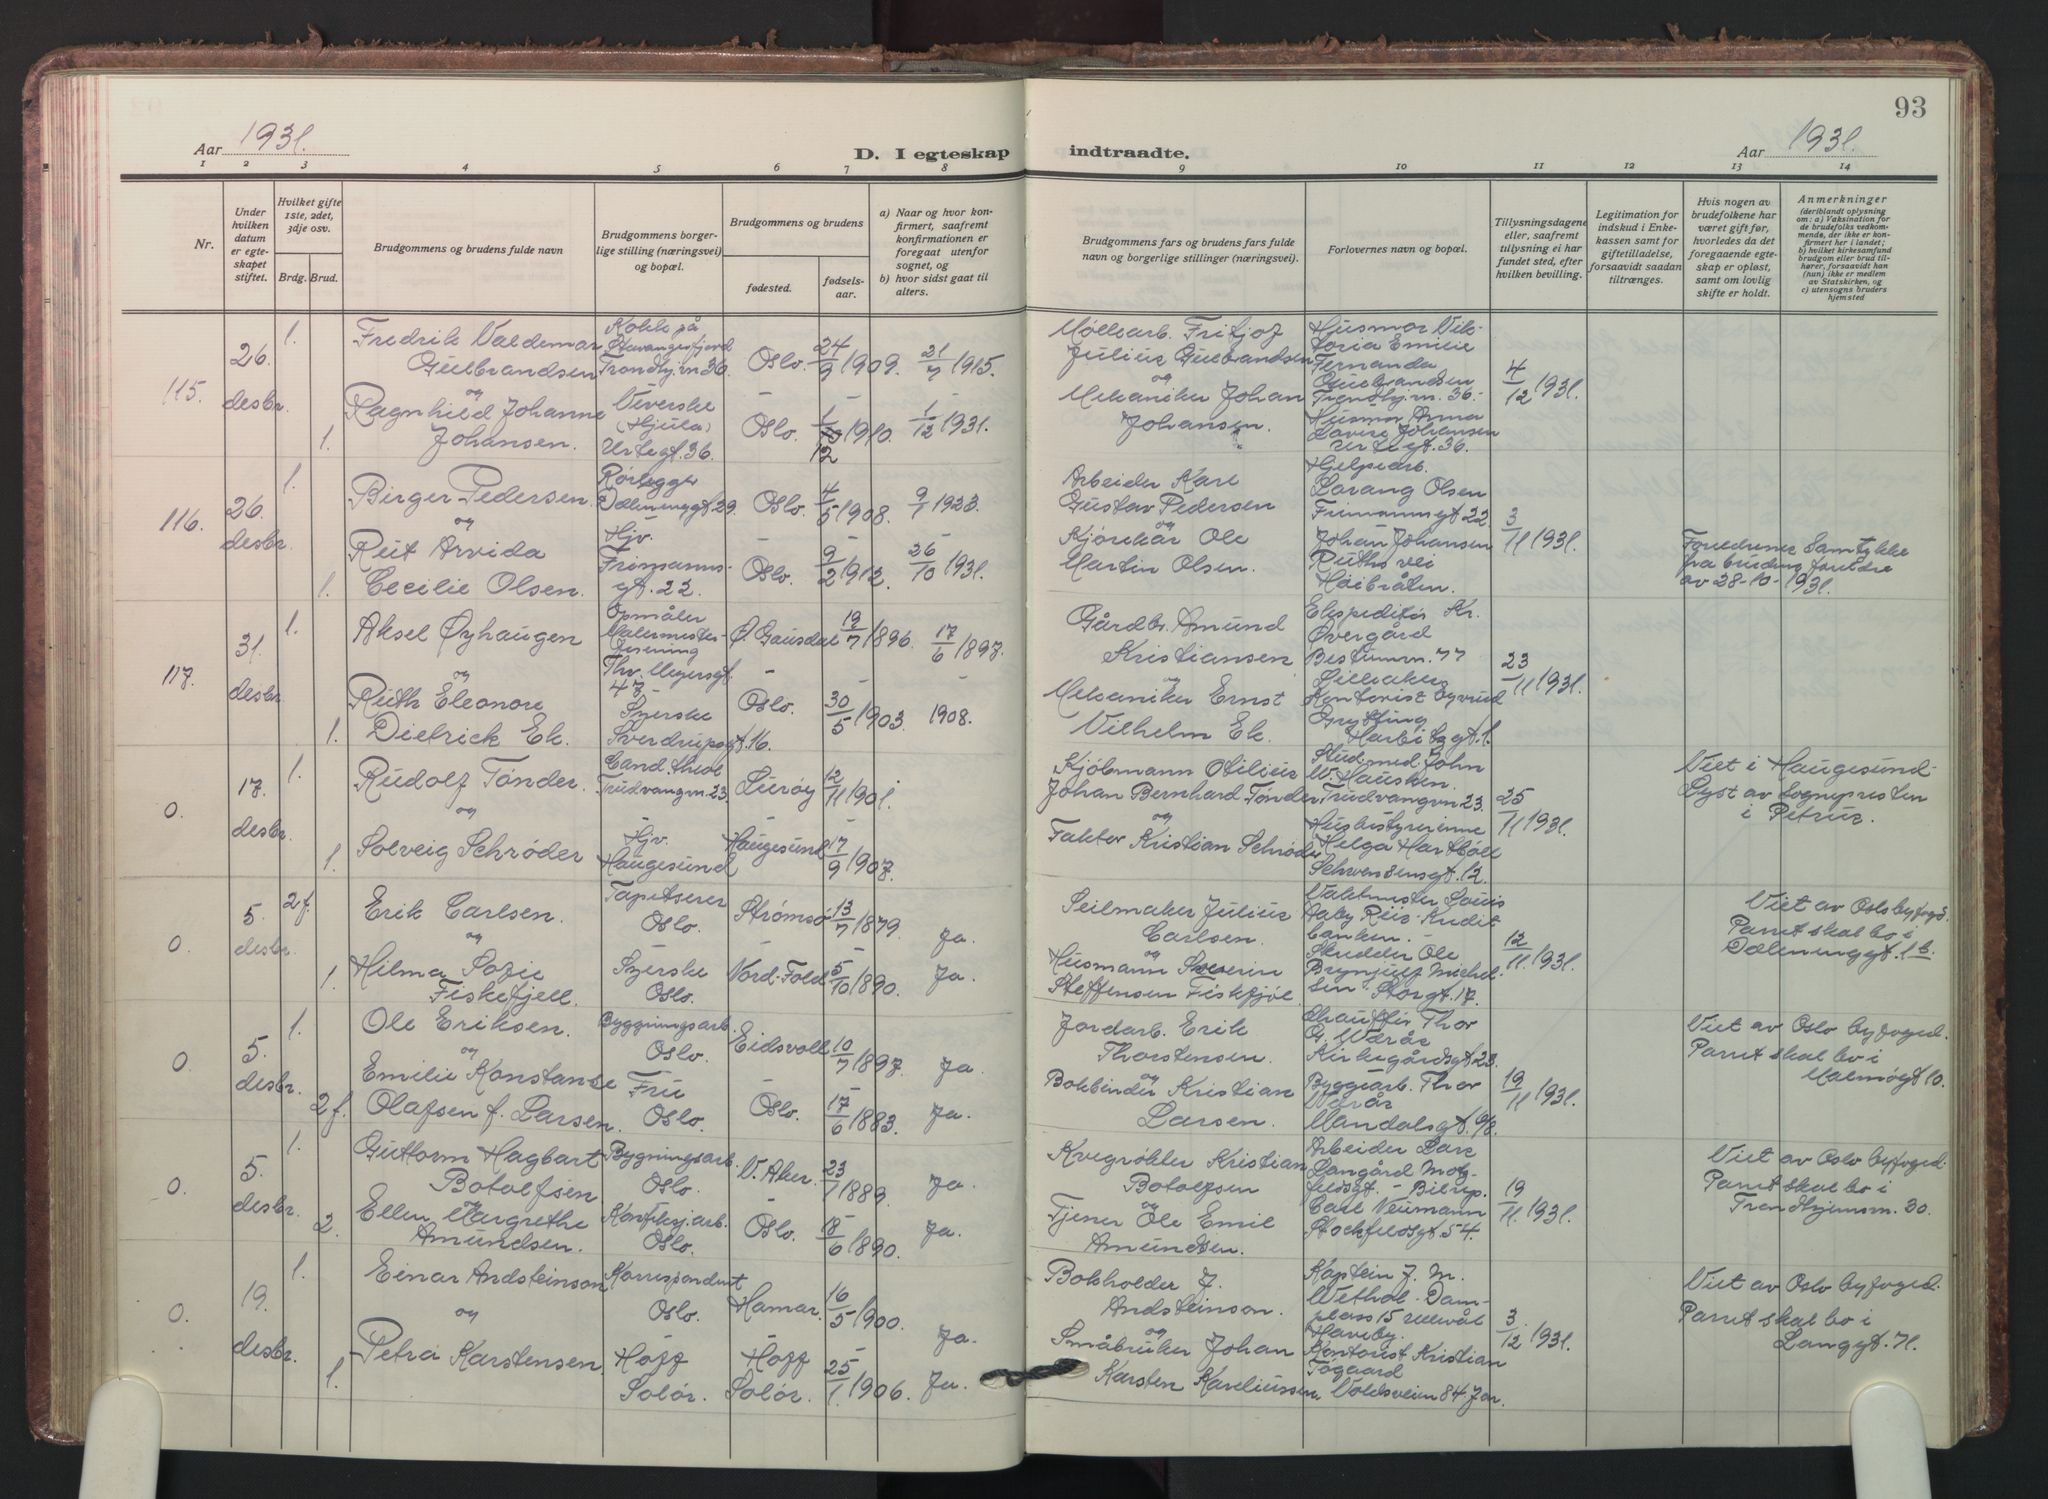 93
Aar 1931.
D. I egteskap indtraadte.
Aar 1931.
1 2 3 4 5 6 7 8 9 10 11 12 13 14
Nr.
Under hvilken datum er egte-skapet stiftet.
Hvilket gifte 1ste, 2det, 3dje osv.
Brdg. Brud.
Brudgommens og brudens fulde navn
Brudgommens borger-lige stilling (næringsvei) og bopæl.
Brudgommens og brudens
fødested.
fødsels-aar.
a) Naar og hvor kon-firmert, saafremt konfirmationen er foregaat utenfor sognet, og
b) hvor sidst gaat til alters.
Brudgommens fars og brudens fars fulde navn og borgerlige stillinger (næringsvei).
Forlovernes navn og bopæl.
Tillysningsdagene eller, saafremt tillysning ei har fundet sted, efter hvilken bevilling.
Legitimation for indskud i Enke-kassen samt for giftetilladelse, forsaavidt saadan tiltrænges.
Hvis nogen av brudefolkene har været gift før, hvorledes da det foregaaende egte-skap er opløst, samt om lovlig skifte er holdt.
Anmerkninger
(deriblandt oplysning om: a) Vaksination for de brudefolks vedkom-mende, der ikke er kon-firmert her i landet; b) hvilket kirkesamfund brudgom eller brud til-hører, forsaavidt han (hun) ikke er medlem av Statskirken, og c) utensogns bruders hjemsted
115.
26. desbr.
1.
Fredrik Valdemar
Gulbrandsen
Kokk på
Stavangerfjord
Trondhj.vn 36.
Oslo.
24/9 1909.
21/7 1915.
Møllearb. Fritjof
Julius Gulbrandsen
Husmor Vik-
toria Emilie
Fernanda
Gulbrandsen
Trondhj.vn. 36.
4/12 1931.
og
1.
Ragnhild Johanne
Johansen.
Veverske
(Hjula)
Urtegt. 36.
Oslo.
1/12 1910.
1/12 1931.
og
Mekaniker Johan
Johansen.
Husmor Anna
Lovise Johansen
Urtegt. 36.
116.
26. desbr.
1.
Birger Pedersen
Rørlegger
Dælenenggt 29
Oslo.
4/5 1908.
9/7 1923.
Arbeider Karl
Gustav Pedersen
Hjelpearb.
Lorang Olsen
Frimannsgt 22
3/11 1931.
og
1.
Rut Arvida
Cecilie Olsen.
Hjv.
Frimanns-
gt. 22
Oslo.
9/2 1912.
26/10 1931.
og
Kjørekar Ole
Martin Olsen.
Johan Johansen
Ruths vei
Høibråten.
Foreldrenes Samtykke
fra brudens foreldre
av 28-10-1931.
117.
31. desbr.
1.
Aksel Øyhaugen
Opmåler
Malermester-
forening
Thv. Meyersgt.
47
Ø. Gausdal
19/7 1896.
17/6 1897.
Gårdbr. Amund
Kristiansen
Ekspeditør Kr.
Øvergård
Bestumvn. 77
Lilleaker
23/11 1931.
og
1.
Ruth Eleonore
Dietrick Ek.
Syerske
Sverdrupsgt. 16.
Oslo.
30/5 1903.
1908.
og
Mekaniker Ernst
Vilhelm Ek.
Kontorist Øyvind
Grytting
Harbitzgt. 1.
0.
17. desbr.
1.
Rudolf Tønder.
Cand. theol
Trudvangvn. 23.
Lurøy
12/11 1901.
Kjøbmann Otilius
Johan Bernhard Tønder
Stud. med. John
W. Hausken.
Trudvangvn 23.
25/11 1931.
Viet i Haugesund.
Lyst av Sognepresten
i Petrus.
og
1.
Solveig Schrøder
Hjv.
Haugesund
Haugesund
17/9 1907.
og
Faktor Kristian Schrøder
Husbestyrerinne
Helga Hartbøll
Schwensensgt. 12.
0.
5. desbr.
2 f.
Erik Carlsen.
Tapetserer
Oslo.
Strømsø
13/7 1879.
Ja.
Seilmaker Julius
Carlsen.
Vaktmester Louis
Aaby Riis-Kredit
banken.
12/11 1931.
Viet av Oslo byfogd.
Parret skal bo i
Dælenenggt. 1 b.
og
1.
Hilma Sofie
Fiskefjell.
Syerske
Oslo.
Nord-Fold
5/10 1890.
Ja.
og
Husmann Severin
Steffensen Fiskfjøl.
Skredder Ole
Brynjulf Michel-
sen Storgt. 17.
0.
5. desbr.
1.
Ole Eriksen.
Bygningsarb.
Oslo.
Eidsvoll
10/7 1897.
Ja.
Jordarb. Erik
Thorstensen.
Chauffør Thor
G. Wårås
Kirkegårdsgt 23.
19/11 1931.
Viet av Oslo byfoged.
Parret skal bo i
Malmøgt 10.
og
2 f.
Emilie Konstanse
Olafsen f. Larsen.
Fru
Oslo.
Oslo.
17/6 1883.
Ja.
og
Bokbinder Kristian
Larsen.
Byggearb. Thor
Wårås
Mandalsgt. 6/8.
0.
5. desbr.
1.
Guttorm Hagbart
Botolfsen
Bygningsarb.
Oslo.
V. Aker.
23/7 1889.
Ja.
Kvegrøkter Kristian
Botolfsen
Arbeider Lars
Langård Mot-
feldsgt.
19/11 1931.
Viet av Oslo byfoged.
Parret skal bo i
Trondhjemsvn. 30.
og
2.
Ellen Margrethe
Amundsen.
Konfeksj.arb.
Oslo.
Oslo.
18/6 1890.
Ja.
og
Tjener Ole Emil
Amundsen.
Carl Neumann
Stockfledsgt. 54.
0.
19. desbr.
1.
Einar Andsteinson
Korrespondent
Oslo.
Hamar.
16/5 1900.
Ja.
Bokholder J.
Andsteinson.
Kaptein J. M.
Wethal. Dam-
plass 15 Ullevål
Haveby.
3/12 1931.
Viet av Oslo byfoged.
Parret skal bo i
Langgt. 71.
og
1.
Petra Karstensen
Hoff
Solør.
Hoff
Solør.
25/1 1906.
Ja.
og
Småbruker Johan
Karsten Kareliussen
Kontorist Kristian
Togaard
Voldsveien 84 Jar.